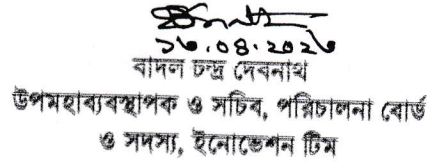 ১৩.০৪.২০২৬
বাদল চন্দ্র দেবনাথ
উপমহাব্যবস্থাপক ও সচিব, পরিচালনা বোর্ড
ও সদস্য, ইনোভেশন টিম